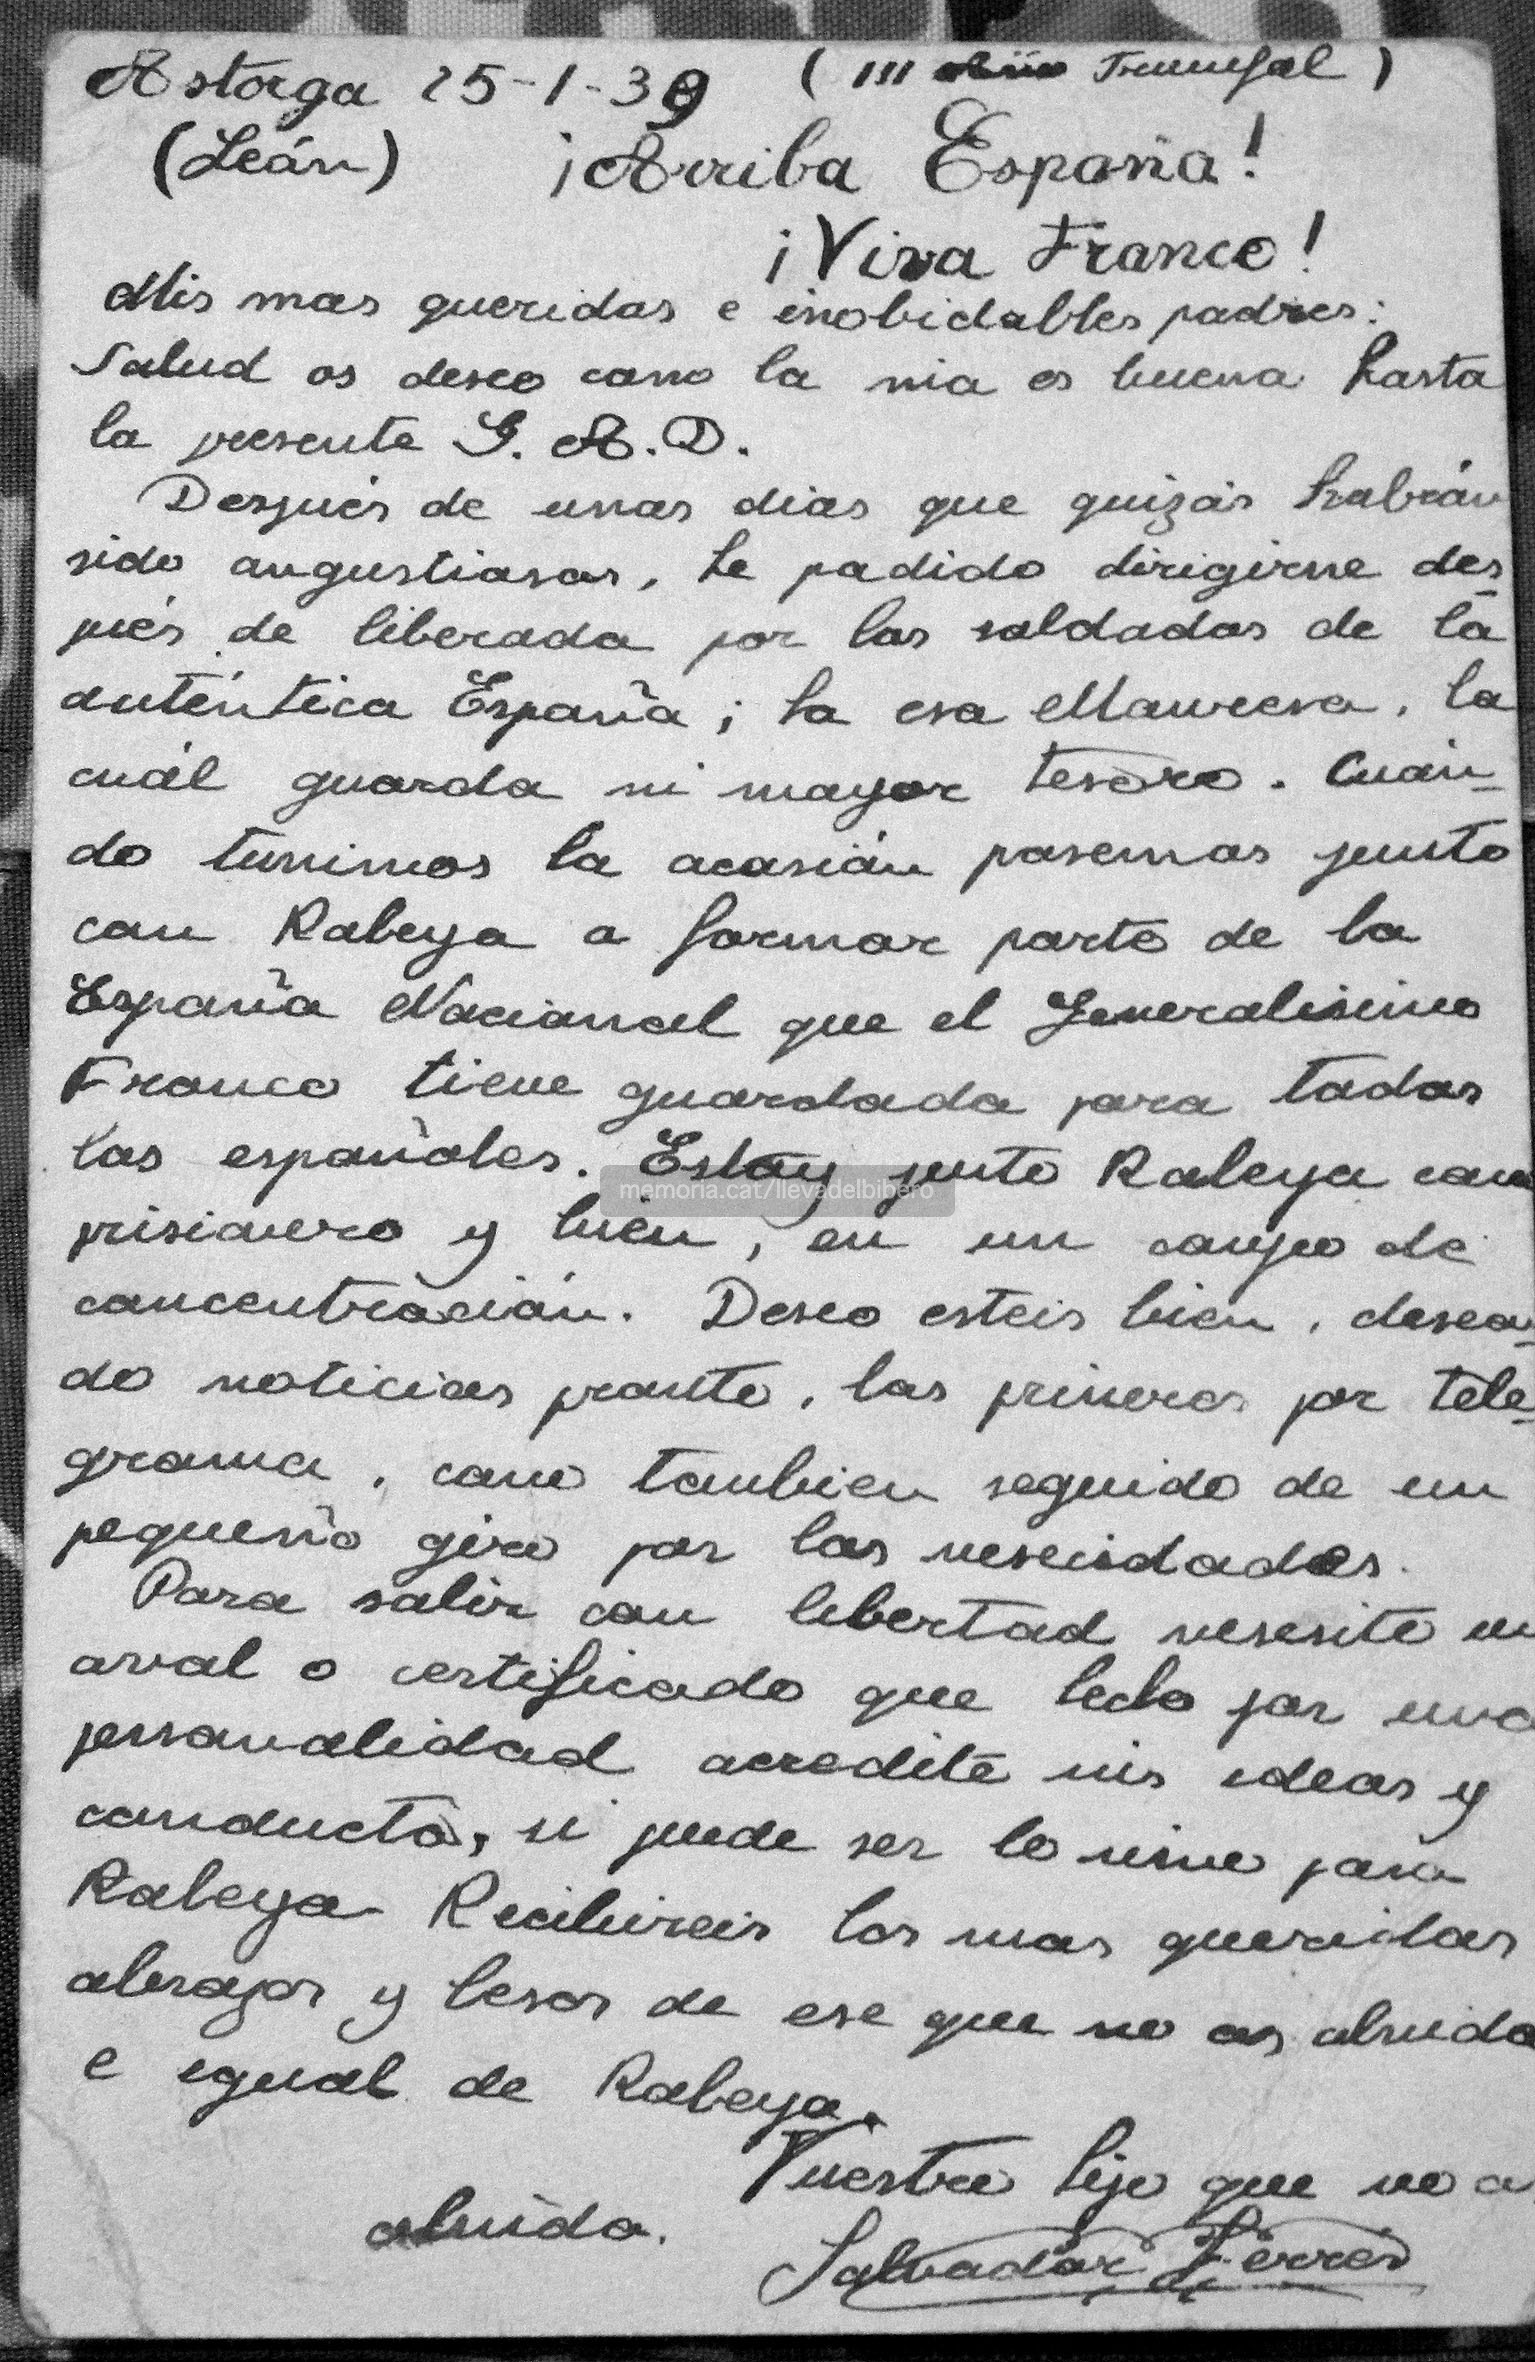 Astorga 25-1-39 (III Año Triunfal)
(León) ¡Arriba España!
¡Viva Franco!
Mis mas queridos e inobidables padres:
Salud os deseo como la mia es buena hasta
la presente G. A. D.
Después de unos dias que quizás habrán
sido angustiosos, he podido dirigirme des-
pués de liberada por los soldados de la
auténtica España; ha esa Manresa, la
cuál guarda mi mayor tesoro. Cuán-
do tunimos la acasión pasemos junto
con Rabeya a formar parte de la
España Nacional que el Generalisimo
Franco tiene guardada para todos
los españoles. Estoy junto Rabeya como
prisionero y bien, en un campo de
concentración. Deseo esteis bien, desean-
do noticias pronto, las primeras por tele-
grama, como tambien seguido de un
pequeño giro por las nesesidades.
Para salir con libertad nesesito un
aval o certificado que hecho por una
personalidad acredite mis ideas y
conducta, si puede ser lo mismo para
Rabeya. Recibireis los mas queridos
abrazos y besos de ese que no os olvida
e egual de Rabeya.
Vuestro hijo que no os
olvida.
Salvador Ferrer
memoria.cat/llevadelbibero